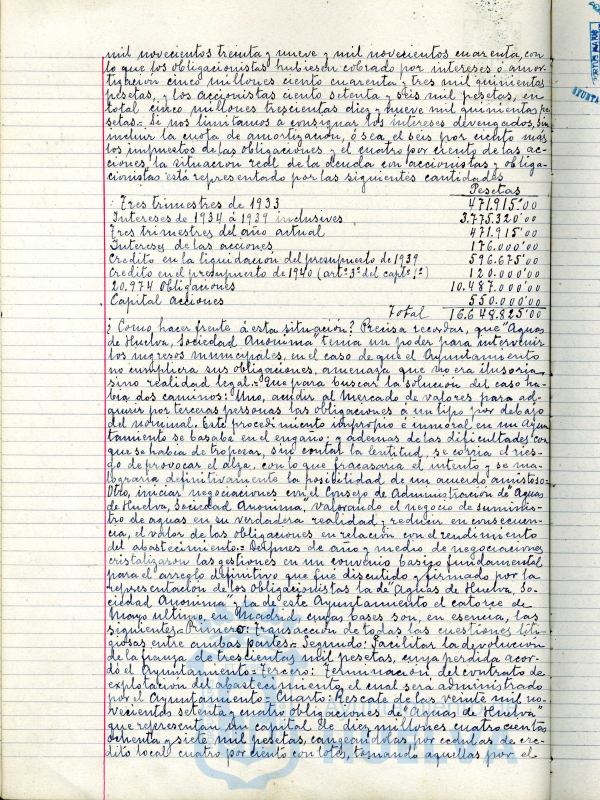 mil novecientos treinta y nueve y mil novecientos cuarenta, con
lo que los obligacionistas hubiesen cobrado por intereses ó amor-
tización cinco millones ciento cuarenta y tres mil quinientas
pesetas, y los accionistas ciento setenta y seis mil pesetas, en
total cinco millones trescientas diez y nueve mil quinientas pe
setas.- Si nos limitamos a consignar los intereses devengados, sin
incluir la cuota de amortización, ó sea el seis por ciento más
los impuestos de las obligaciones y el cuatro por ciento de las ac-
ciones, la situación real de la deuda con accionistas y obliga-
cionistas está representado por las siguientes cantidades
Pesetas
Tres trimestres de 1933 471.915'00
Intereses de 1934 á 1939 inclusives 3.775.320'00
Tres trimestres del año actual 471.915'00
Intereses de las acciones 176.000'00
Crédito en la liquidación del presupuesto de 1939 596.675'00
Crédito en el presupuesto de 1940 (artº 3º del captº 1º) 120.000'00
20.974 Obligaciones 10.487.000'00
Capital acciones 550.000'00
Total 16.648.825'00
¿Como hacer frente á esta situación? Precisa recordar, que "Aguas
de Huelva, Sociedad Anónima" tenía un poder para intervenir
los ingresos municipales, en el caso de que el Ayuntamiento
no cumpliera sus obligaciones, amenaza que no era ilusoria
sino realidad legal.- Que para buscar la solución del caso ha-
bía dos caminos: Uno, acudir al Mercado de valores para ad-
quirir por terceras personas las obligaciones á un tipo por debajo
del nominal. Este procedimiento impropio é inmoral en un Ayun
tamiento se basaba en el engaño; y además de las dificultades con
que se había de tropezar, sin contar la lentitud, se corría el ries-
go de provocar el alza, con lo que fracasaría el intento y se ma-
lograría definitivamente la posibilidad de un acuerdo amistoso.-
Otro, iniciar negociaciones con el Consejo de Administración de "Aguas
de Huelva, Sociedad Anónima, valorando el negocio de suminis-
tro de aguas en su verdadera realidad y reducir en consecuen-
cia, el valor de las obligaciones en relación con el rendimiento
del abastecimiento.- Después de año y medio de negociaciones
cristalizaron las gestiones en un convenio básico fundamental
para el arreglo definitivo que fué discutido y firmado por la
representación de los obligacionistas la de "Aguas de Huelva, So-
ciedad Anónima" y la de este Ayuntamiento el catorce de
Mayo último, en Madrid, cuyas bases son, en esencia, las
siguientes.- Primero: Transacción de todas las cuestiones liti-
giosas entre ambas partes.- Segundo: Facilitar la devolución
de la fianza de trescientas mil pesetas, cuya pérdida acor-
dó el Ayuntamiento.- Tercero: Terminación del contrato de
explotación del abastecimiento, el cual será administrado
por el Ayuntamiento.- Cuarto: Rescate de las veinte mil no-
vecientas setenta y cuatro obligaciones de "Aguas de Huelva"
que representan un capital de diez millones cuatrocientas
ochenta y siete mil pesetas, cangeándolas por cédulas de cré-
dito local cuatro por ciento con lotes, tomando aquellas por el